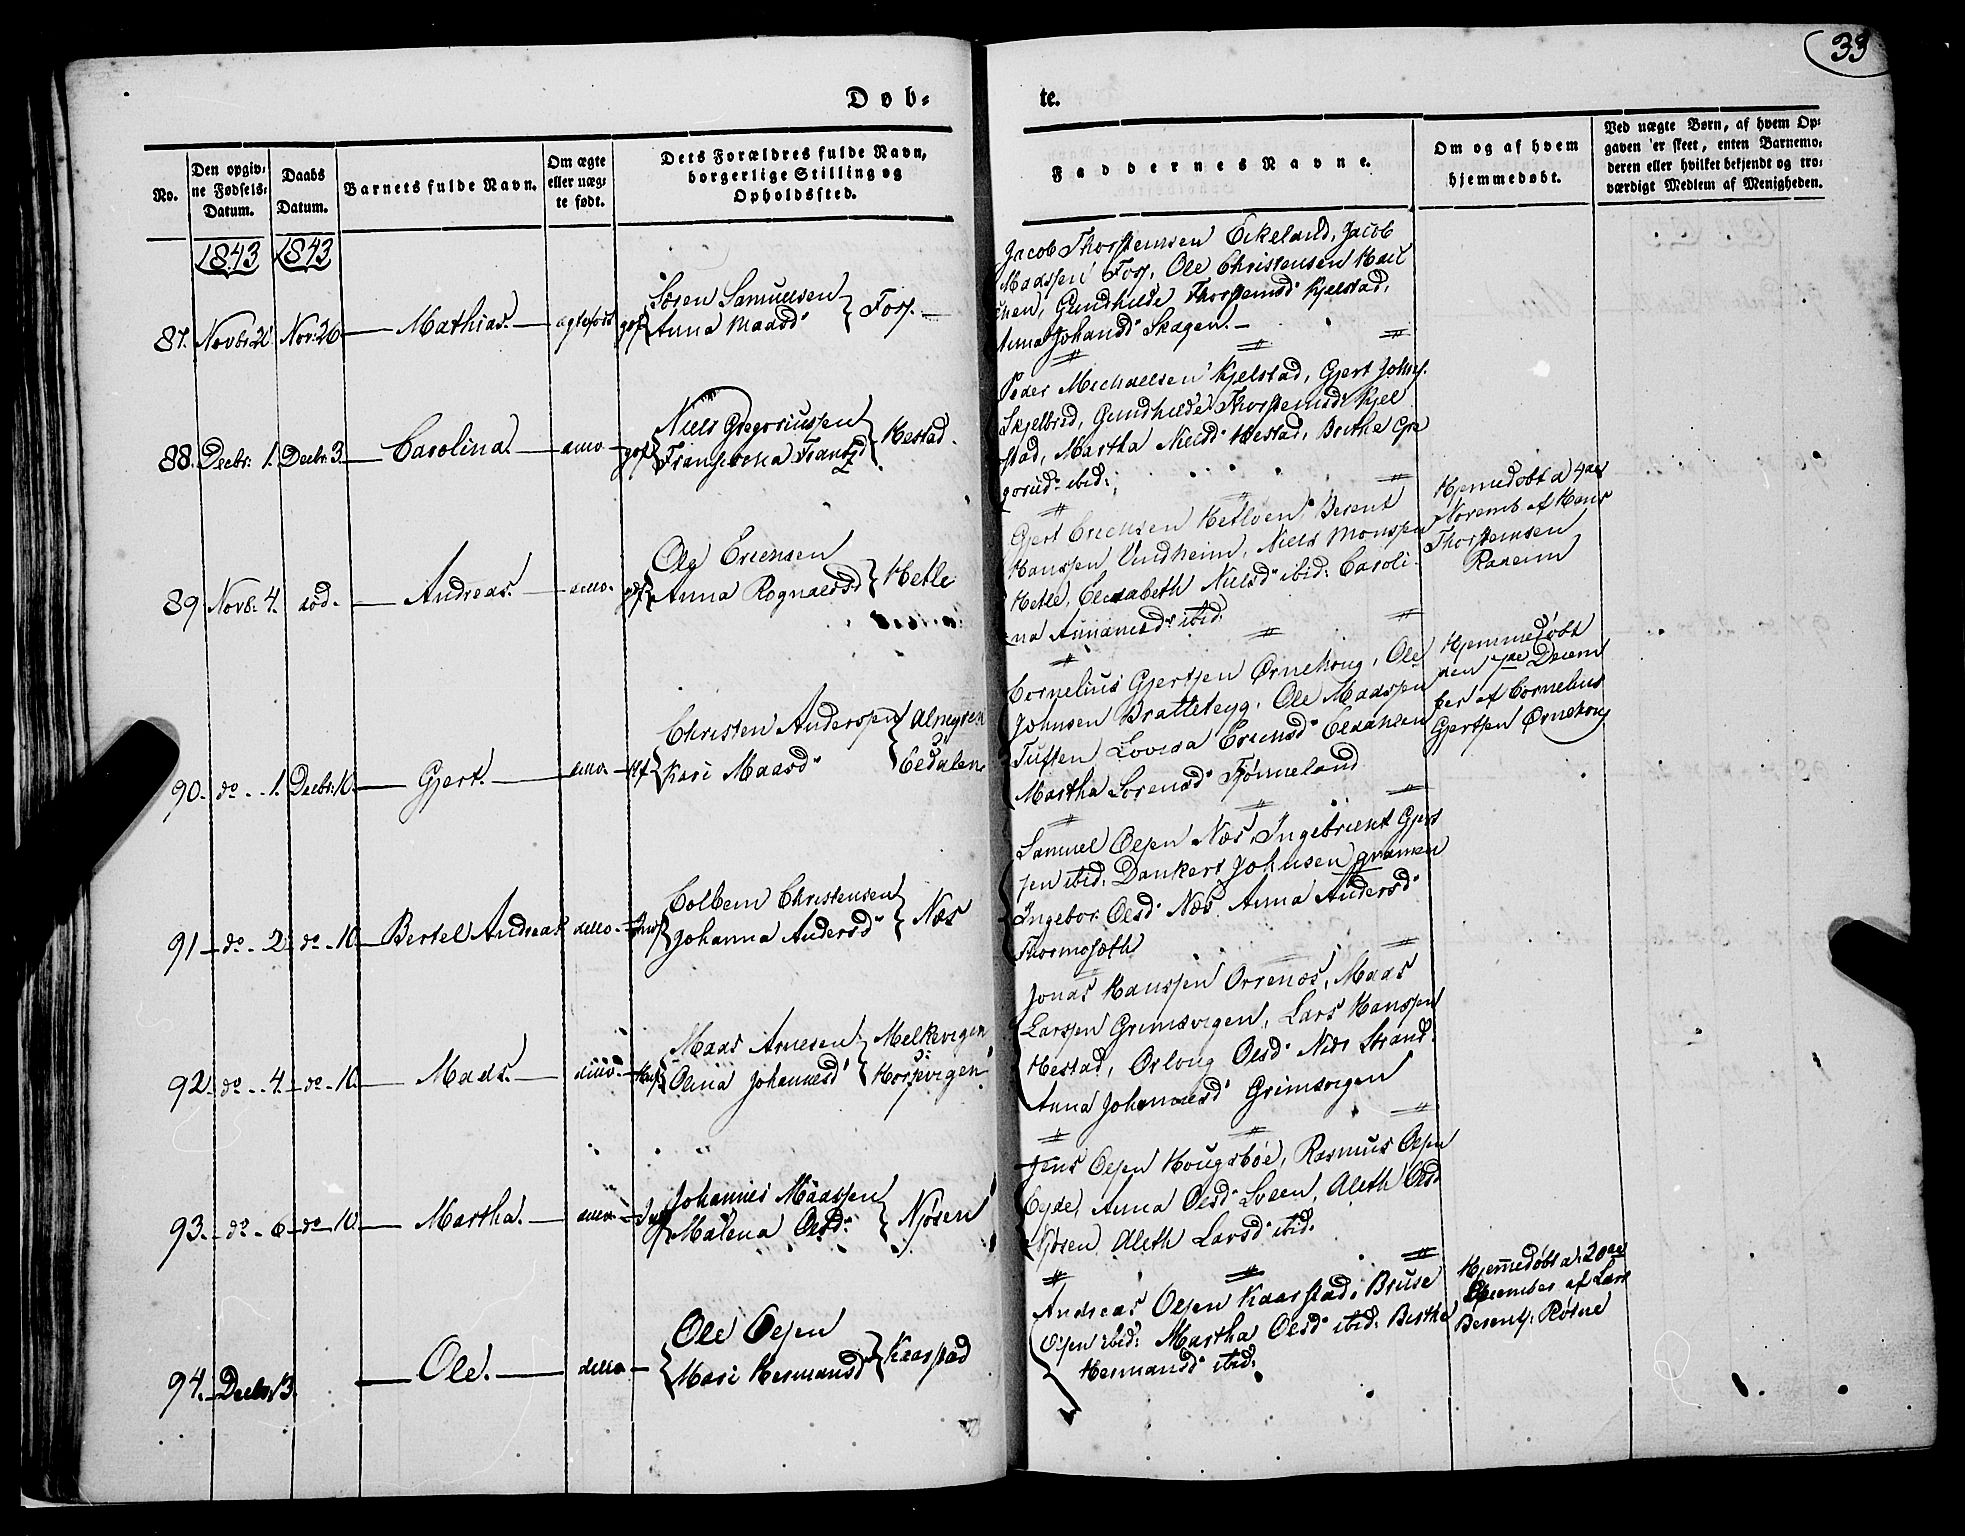 33
Døb-
te.
No.
Den opgiv-
ne Fødsels-
Datum.
Daabs
Datum.
Barnets fulde Navn.
Om ægte
eller uæg-
te født.
Dets Forældres fulde Navn,
borgerlige Stilling og
Opholdssted.
Faddernes Navne.
Om og af hvem
hjemmedøbt.
Ved uægte Børn, af hvem Op-
gaven er skeet, enten Barnemo-
deren eller hvilket bekjendt og tro-
værdigt Medlem af Menigheden.
1843 1843
87. Novbr: Nov: 26 Mathias. ægtefødt
Søren Samuelsen
Anna Maasd
Foss.
Jacob Thorstensen Eikeland, Jacob
Maassen Foss, Ole Christensen
Gundhilde Thorstensd Kjelstad,
Anna Johansd Skagen.
88. Decbr: 1. Decbr: 3. Carolina. ditto
Niels Gregoriussen
Fransd
Hestad.
Peder Michaelsen Kjelstad, Gjert Johns.
Skjelbred, Gundhilde Thorstensd Kjel
stad, Martha Nielsd Hestad, Brithe Gre
gorisd ibid:
89 Novb: 4. død. Andreas. ditto
Ole Ericksen
Anna Rognaldsd
Hetle
Gjert Ericksen Hetleøen, Berent
Hanssen Undheim, Niels Monssen
Hetle, Elisabeth Nielsd ibid: Caroli-
na ibid:
Hjemedøbt d 4de
Novemb af Hans
Thorstensen
90. do. 1. Decbr: 10. Gjert. ditto
Christen Anderssen
Kari Maasd
Cornelius Gjertsen Ørnehoug, Ole
Johnsen Bratteteyg, Ole Maassen
Tuften Lovisa Ericksd
Martha Sørensd Tjønneland
Hjemmedøbt
den 7de Decem
ber af Cornelius
Gjertsen Ørnehoug
91 do. 2 do. 10. Bertel Andreas ditto
Colbein Christensen
Johanna Andersd
Næs
Samuel Olsen Næs, Ingebricht Gjert
sen ibid: Dankert Johnsen
Ingebor Olsd Næs Anna Andersd
92 do. 4. do. 10. Mads. ditto
Maas Arnesen
Olina Johannesd
Melkevigen
Horsevigen
Jonas Hanssen Orrenæs, Maas
Larssen Grimsvigen, Lars Hanssen
Hestad, Olsd Nedr Strand
Anna Johannesd Grimsvigen
93. do. 6 do. 10 Martha. ditto
Johannes Maassen
Malena Olsd
Njøsen
Jens Olsen Hougsbøe, Rasmus Olsen
Eyde, Anna Olsd Sveen, Aleth Olsd
Njøsen Aleth Larsd ibid:
94. Decbr: 13. Ole. ditto
Ole Olsen
Mari Hermansd
Kaarstad
Andreas Olsen Kaarstad, Bruse
Olsen ibid: Martha Olsd ibid: Birthe
Hermansd ibid:
Hjemmedøbt d: 20de
Decem­ber af Lars
Berents: Røsne